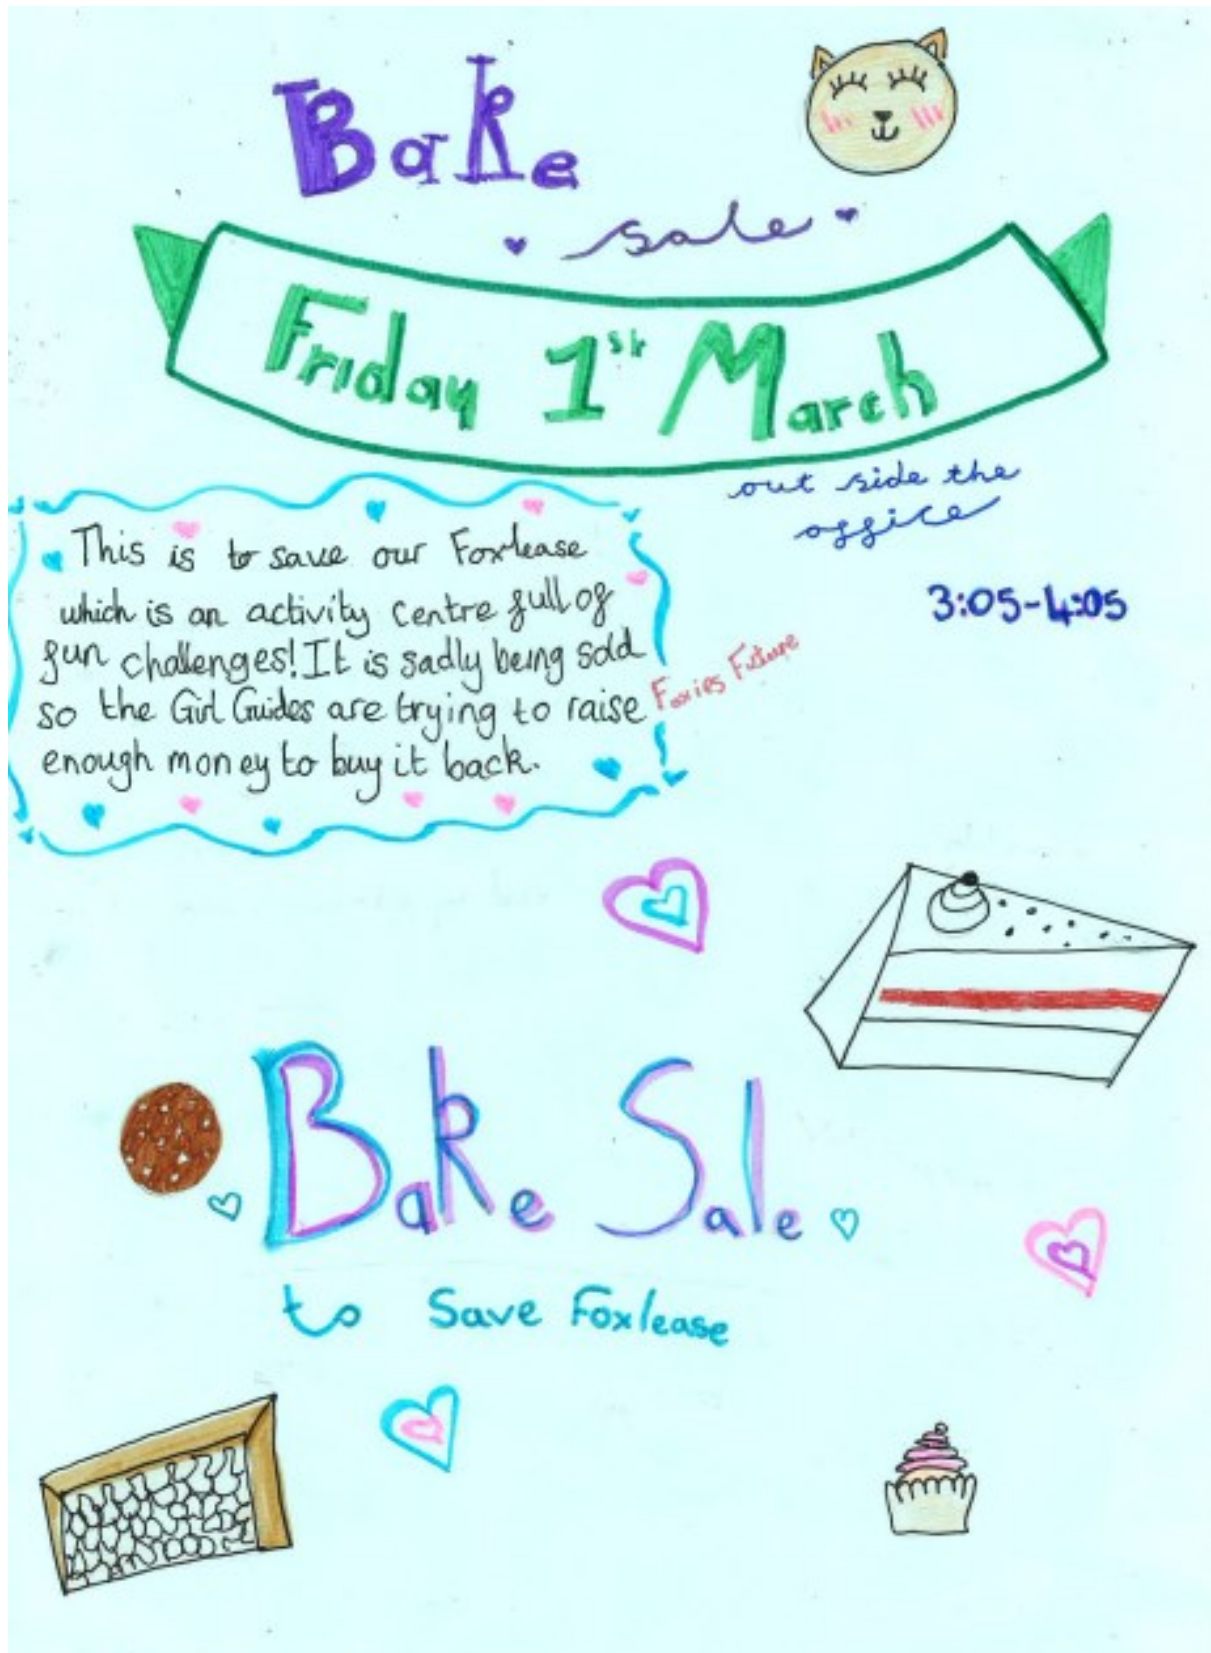 Bake
sale
Friday 1st March
out side the
office
3:05-4:05
This is to save our Foxlease
which is an activity centre full of
fun challenges! It is sadly being sold
so the Girl Guides are trying to raise
enough money to buy it back.
Foxies Future
Bake Sale
to Save Foxlease